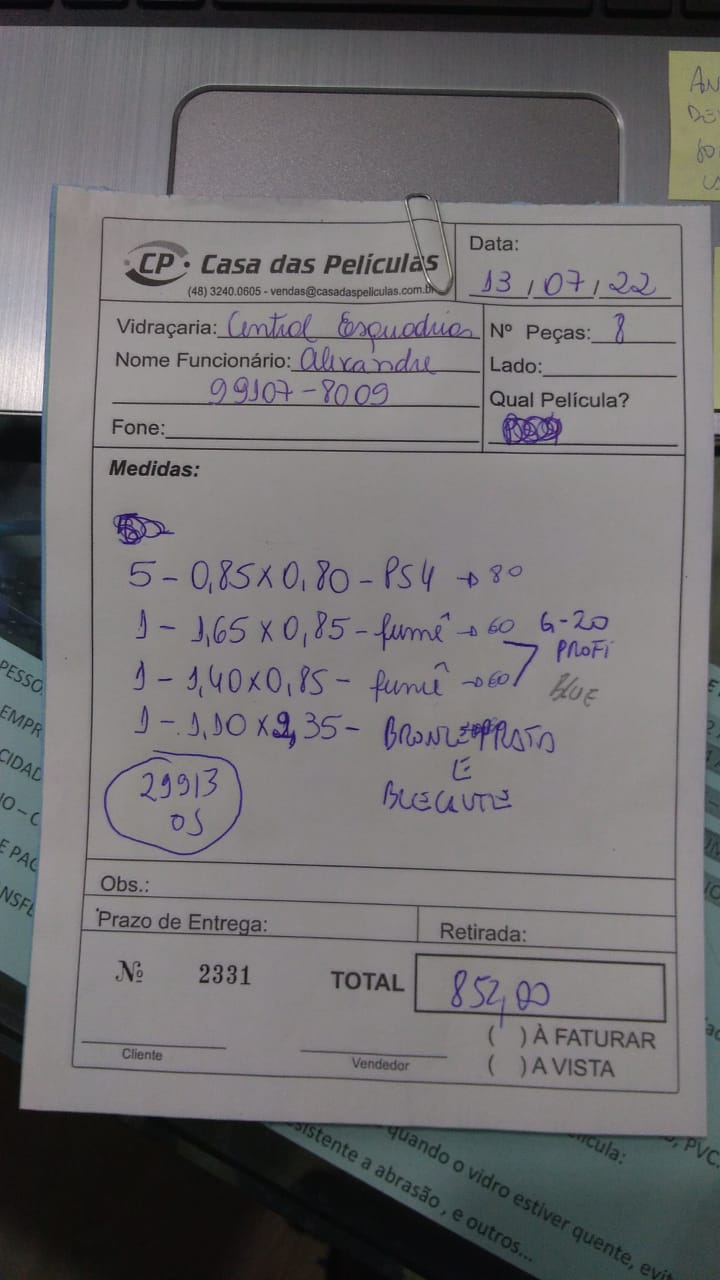 CP Casa das Películas
(48) 3240.0605 - vendas@casadaspeliculas.com.br
Data:
13 / 07 / 22
Vidraçaria: Central Esquadrias
Nº Peças: 8
Nome Funcionário: Alexandre
Lado:
99107-8009
Qual Película?
Fone:
Medidas:
5 - 0,85 x 0,80 - PS4 → 80
1 - 1,65 x 0,85 - fumê → 60 G-20
PROFI
1 - 1,40 x 0,85 - fumê → 60
BLUE
1 - 1,10 x 2,35 - BRONZE PRATA
E
BLECAUTE
29913
OS
Obs.:
Prazo de Entrega:
Retirada:
Nº 2331
TOTAL 852,00
( ) À FATURAR
( ) A VISTA
Cliente
Vendedor
PESSO
EMPR
CIDAD
O - C
E PAG
NSFE
PVC.
ícula:
quando o vidro estiver quente, evit
sistente a abrasão , e outros...